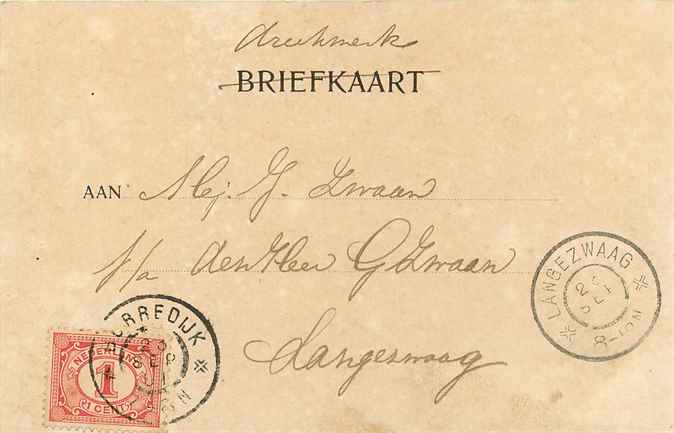 drukwerk
BRIEFKAART
AAN Mej. G. Zwaan
p/a den Heer G Zwaan
Langezwaag
LANGEZWAAG
8-10N
RREDIJK
NEDERLAND
1
1 CENT